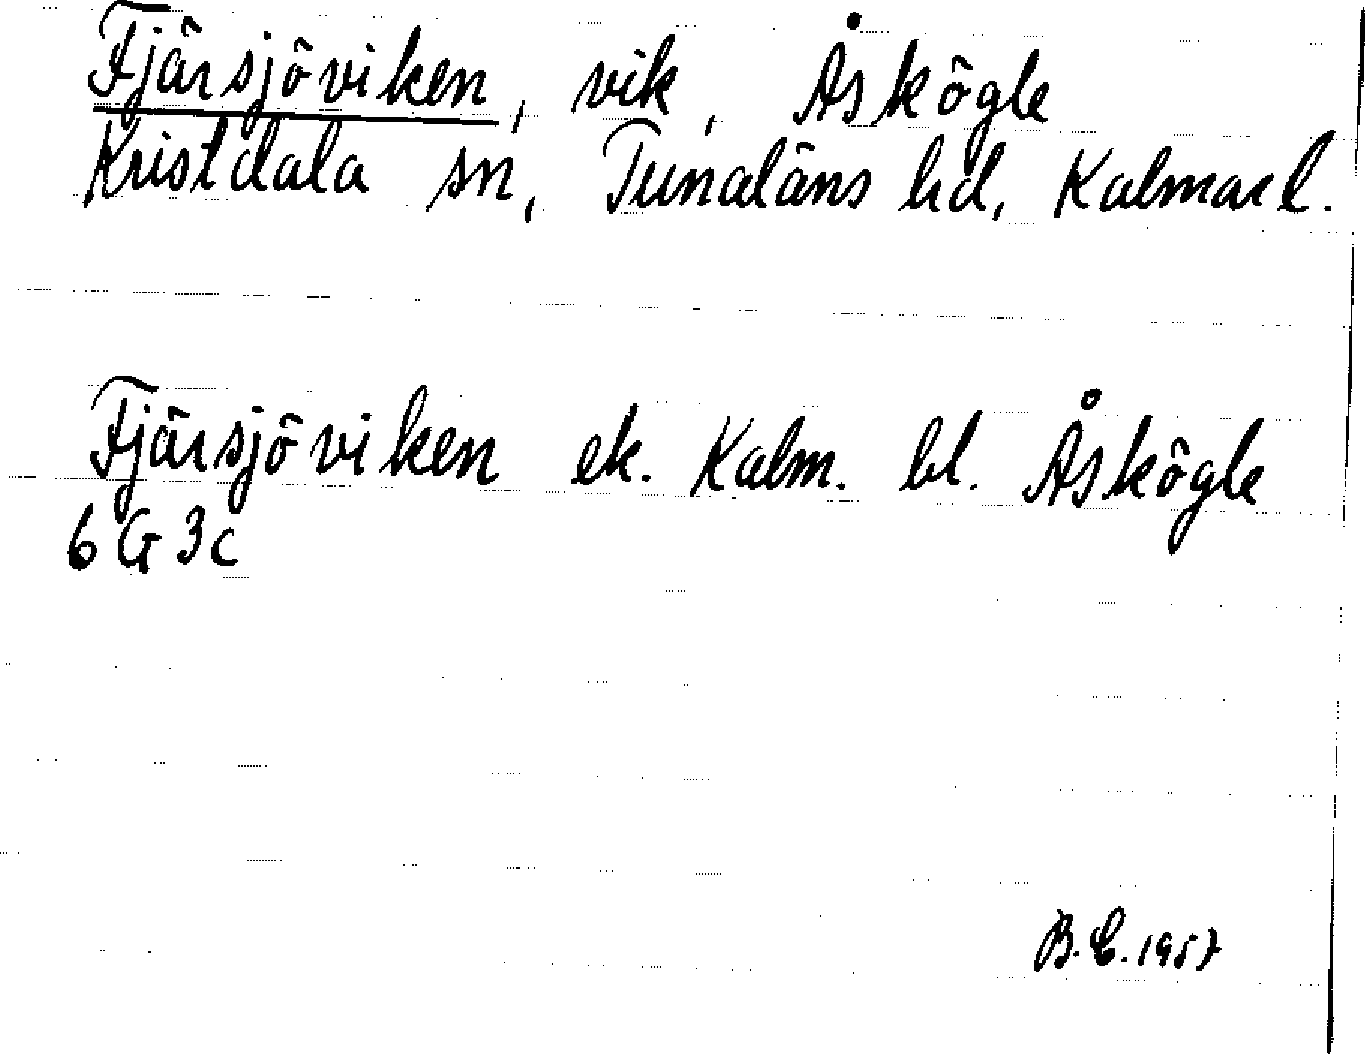 Fjärsjöviken, vik, Åskögle
Kristdala sn, Tunaläns hd, Kalmar l.
Fjärsjöviken ek. Kalm. bl. Åskögle
6 G 3c
B.E. 1957